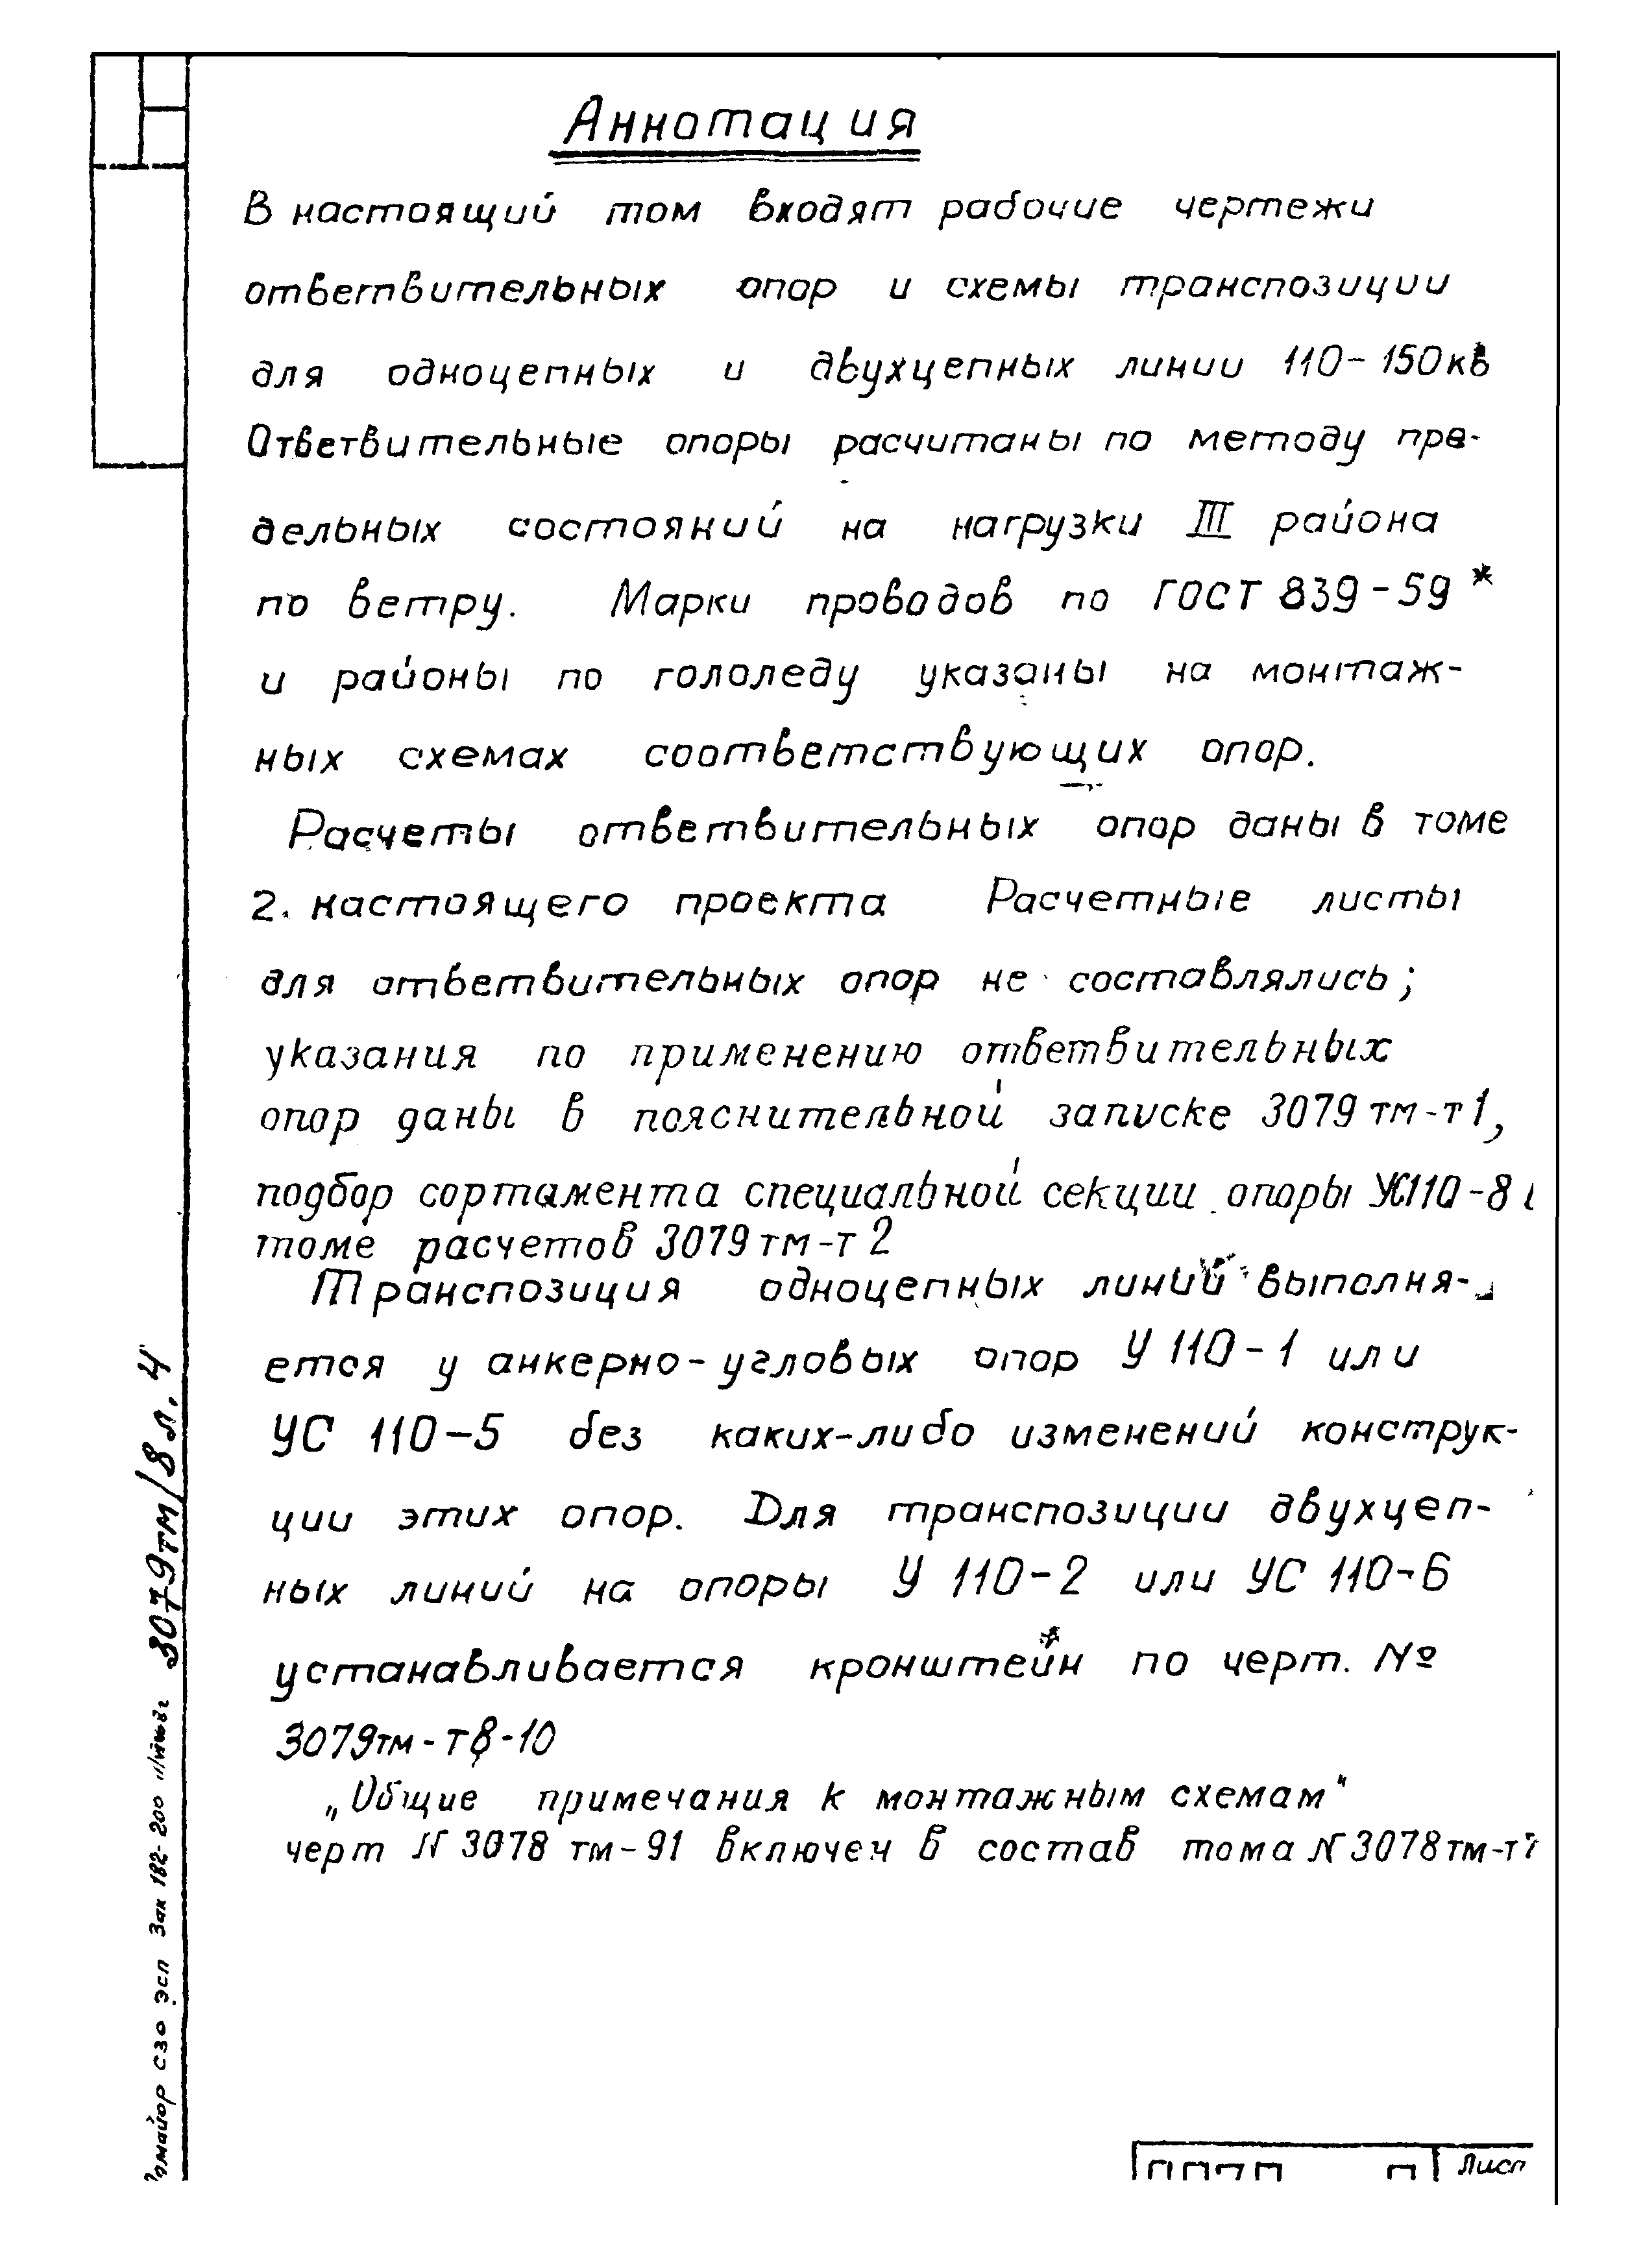 Аннотация
В настоящий том входят рабочие чертежи
ответвительных опор и схемы транспозиции
для одноцепных и двухцепных линии 110-150кв
Ответвительные опоры расчитаны по методу пре-
дельных состояний на нагрузки III района
по ветру. Марки проводов по ГОСТ 839-59*
и районы по гололеду указаны на монтаж-
ных схемах соответствующих опор.
Расчеты ответвительных опор даны в томе
2. настоящего проекта Расчетные листы
для ответвительных опор не составлялись;
указания по применению ответвительных
опор даны в пояснительной записке 3079 тм-т1,
подбор сортамента специальной секции опоры УС110-8
томе расчетов 3079 тм-т 2
Транспозиция одноцепных линий выполня-
ется у анкерно-угловых опор У 110-1 или
УС 110-5 без каких-либо изменений конструк-
ции этих опор. Для транспозиции двухцеп-
ных линий на опоры У 110-2 или УС 110-6
устанавливается кронштейн по черт. №
3079тм-т8-10
„Общие примечания к монтажным схемам"
черт N 3078 тм-91 включен в состав тома N 3078тм-т
3079тм/8 л. 4
СЗО ЭСП Зак 182-200
Лист